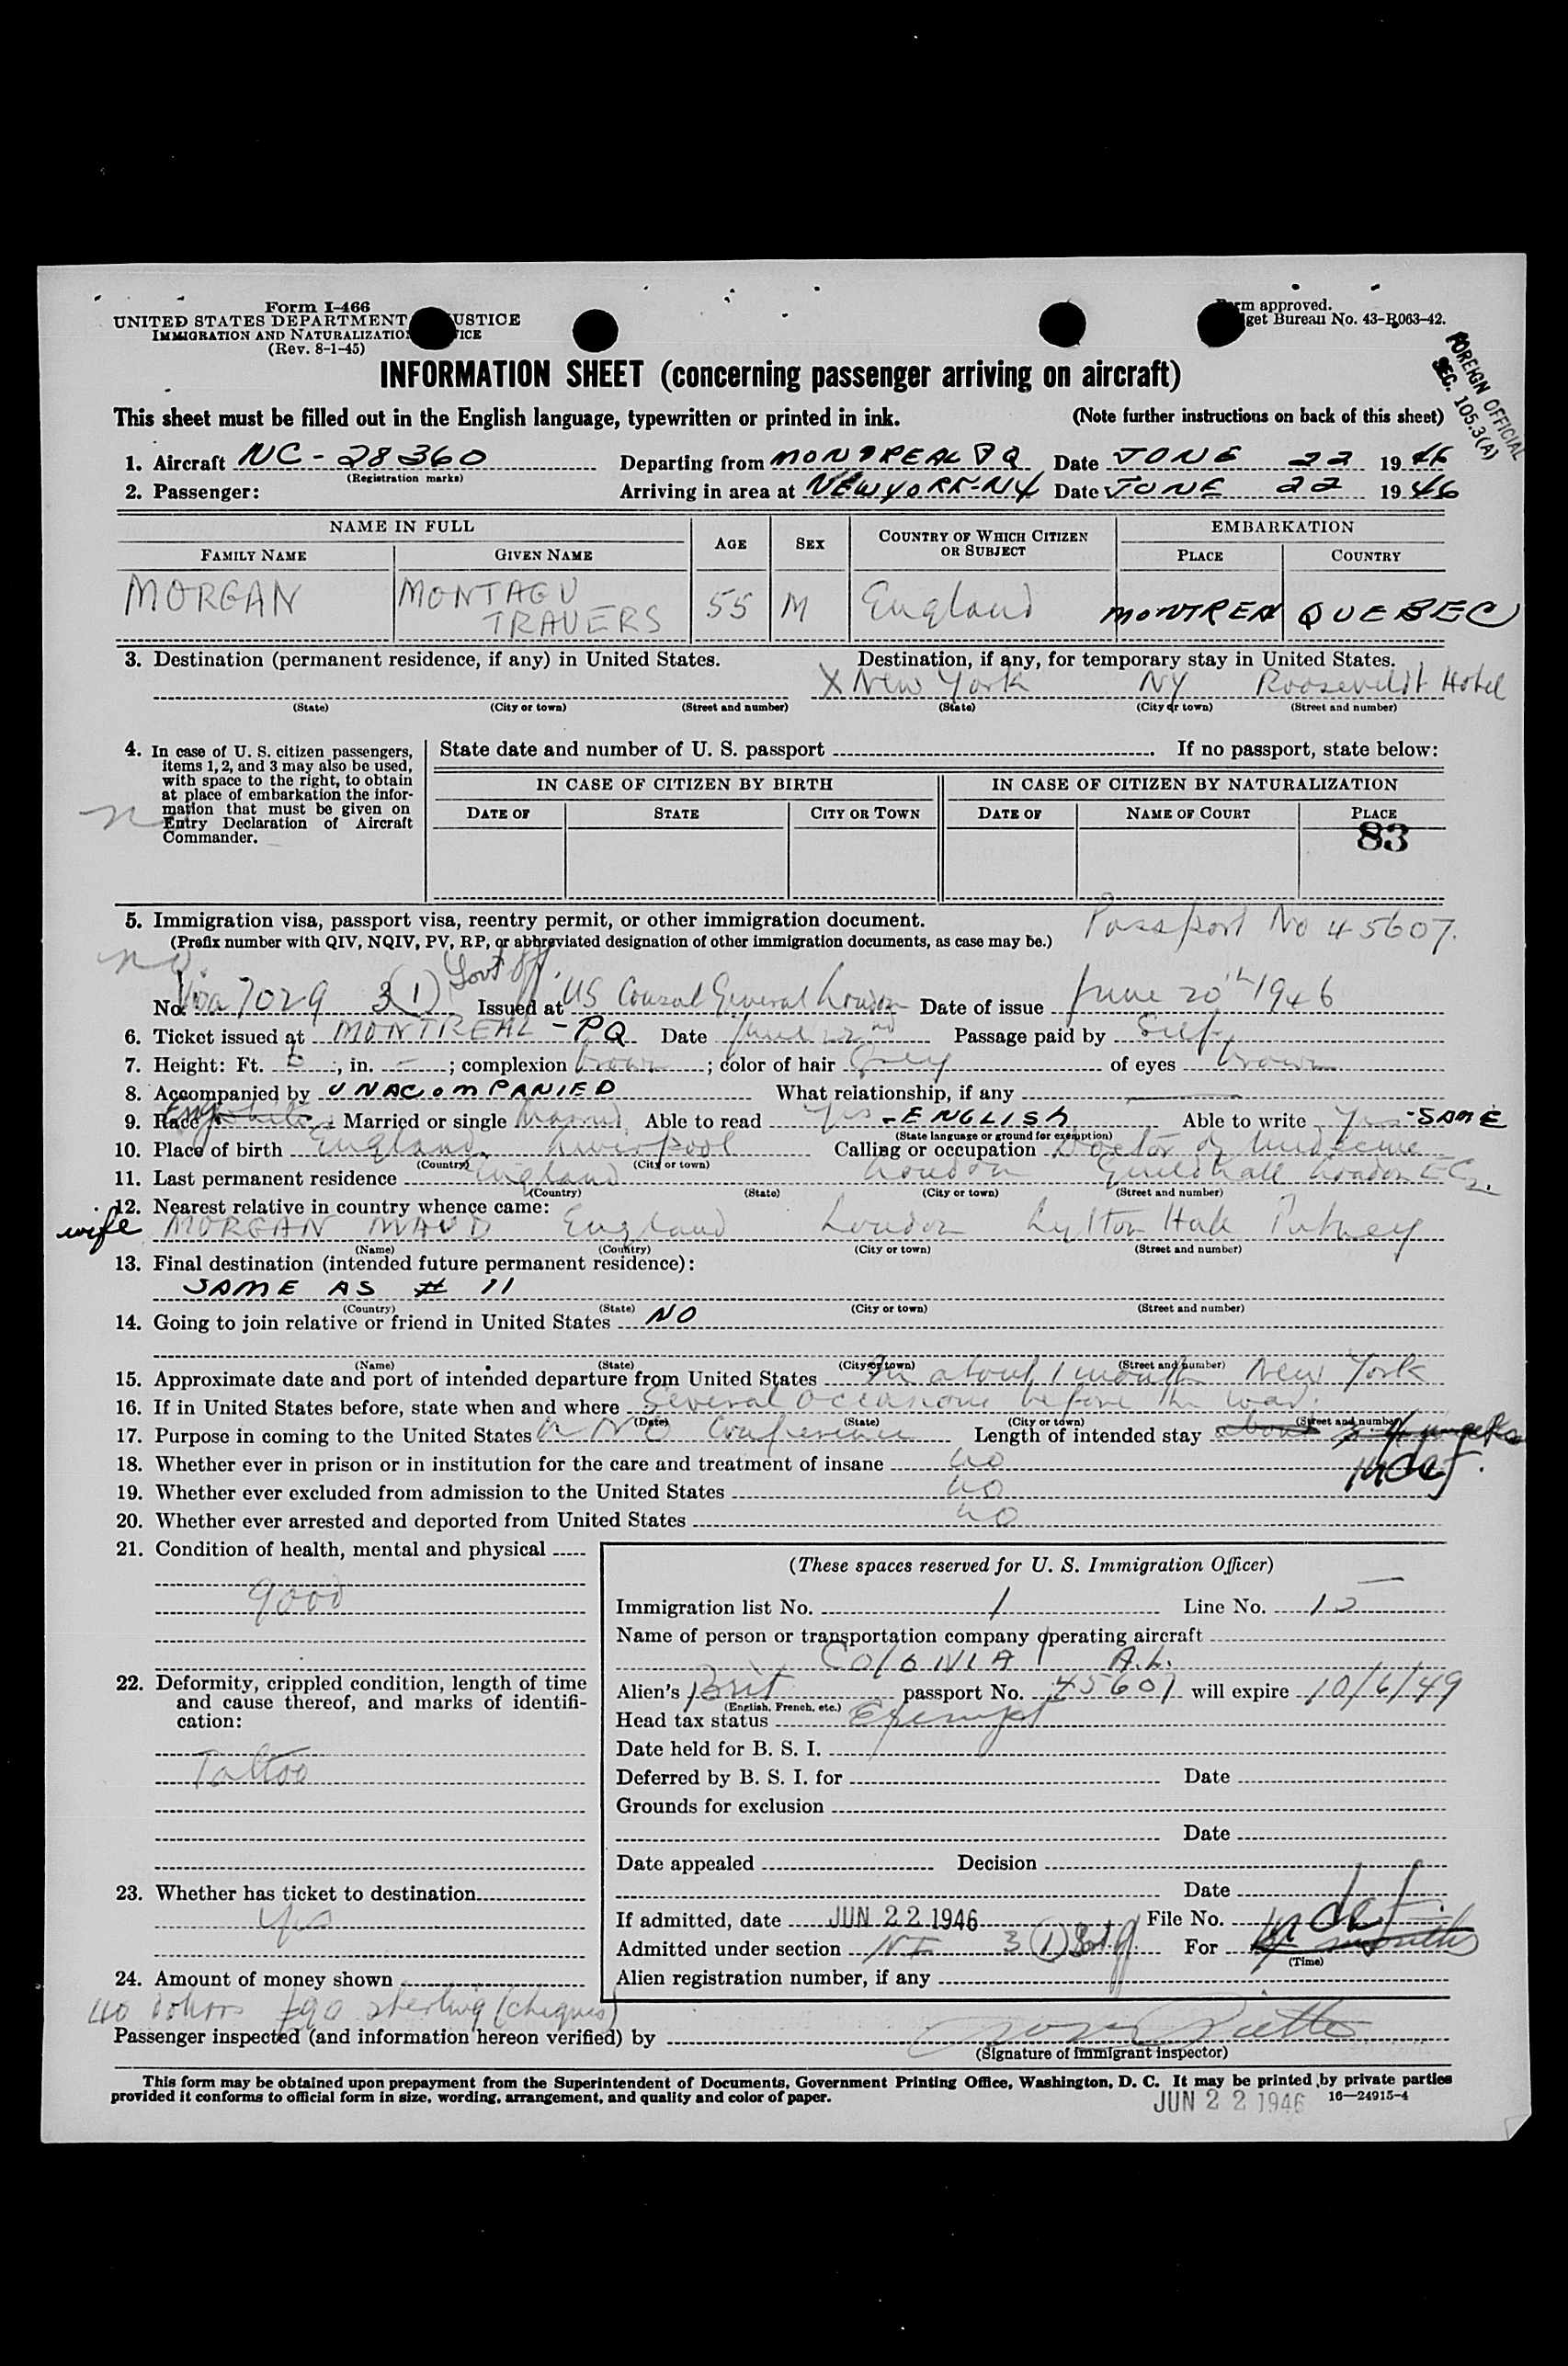 Form I-466
UNITED STATES DEPARTMENT USTICE
IMMIGRATION AND NATURALIZATIO ICE
(Rev. 8-1-45)
rm approved.
get Bureau No. 43-R063-42.
FOREIGN OFFICIAL
SEC. 105.3(A)
INFORMATION SHEET (concerning passenger arriving on aircraft)
This sheet must be filled out in the English language, typewritten or printed in ink. (Note further instructions on back of this sheet)
1. Aircraft NC-28360 Departing from MONTREAL PQ Date JUNE 22 1946
(Registration marks)
2. Passenger: Arriving in area at NEW YORK-NY Date JUNE 22 1946
NAME IN FULL AGE SEX COUNTRY OF WHICH CITIZEN OR SUBJECT EMBARKATION
FAMILY NAME GIVEN NAME PLACE COUNTRY
MORGAN MONTAGU TRAVERS 55 M England MONTREA QUEBEC
3. Destination (permanent residence, if any) in United States. Destination, if any, for temporary stay in United States.
X New York NY Roosevelt Hotel
(State) (City or town) (Street and number) (State) (City or town) (Street and number)
4. In case of U. S. citizen passengers,
items 1, 2, and 3 may also be used,
with space to the right, to obtain
at place of embarkation the infor-
mation that must be given on
Entry Declaration of Aircraft
Commander.
State date and number of U. S. passport If no passport, state below:
IN CASE OF CITIZEN BY BIRTH IN CASE OF CITIZEN BY NATURALIZATION
DATE OF STATE CITY OR TOWN DATE OF NAME OF COURT PLACE
83
5. Immigration visa, passport visa, reentry permit, or other immigration document. Passport No 45607.
(Prefix number with QIV, NQIV, PV, RP, or abbreviated designation of other immigration documents, as case may be.)
No. Visa 7029 3(1) Govt Off. Issued at US Consul General London Date of issue June 20th 1946
6. Ticket issued at MONTREAL-PQ Date June 22nd Passage paid by Self
7. Height: Ft. , in. - ; complexion brown ; color of hair Grey of eyes brown
8. Accompanied by UNACOMPANIED What relationship, if any
9. Race Eng. White Married or single Married Able to read Yes-ENGLISH Able to write Yes-SAME
(State language or ground for exemption)
10. Place of birth England Liverpool Calling or occupation Doctor of Medicine
(Country) (City or town)
11. Last permanent residence England London Guildhall London EC2.
(Country) (State) (City or town) (Street and number)
12. Nearest relative in country whence came:
wife MORGAN MAUD England London Lytton Putney
(Name) (Country) (City or town) (Street and number)
13. Final destination (intended future permanent residence):
SAME AS # 11
(Country) (State) (City or town) (Street and number)
14. Going to join relative or friend in United States NO
(Name) (State) (City or town) (Street and number)
15. Approximate date and port of intended departure from United States In about 1 month New York
16. If in United States before, state when and where Several occasions before the war
(Date) (State) (City or town) (Street and number)
17. Purpose in coming to the United States UNO Conference Length of intended stay about 3-4 weeks
indef.
18. Whether ever in prison or in institution for the care and treatment of insane no
19. Whether ever excluded from admission to the United States no
20. Whether ever arrested and deported from United States no
21. Condition of health, mental and physical
good
22. Deformity, crippled condition, length of time
and cause thereof, and marks of identifi-
cation:
Tattoo
23. Whether has ticket to destination
yes
24. Amount of money shown
40 dollars £90 sterling (cheques)
(These spaces reserved for U. S. Immigration Officer)
Immigration list No. 1 Line No. 15
Name of person or transportation company operating aircraft
Colonial A.L.
Alien's Brit passport No. 45607 will expire 10/6/49
(English, French, etc.)
Head tax status Exempt
Date held for B. S. I.
Deferred by B. S. I. for Date
Grounds for exclusion
Date
Date appealed Decision
Date
If admitted, date JUN 22 1946 File No.
Admitted under section 3 (1) For indef. months
(Time)
Alien registration number, if any
Passenger inspected (and information hereon verified) by
(Signature of immigrant inspector)
This form may be obtained upon prepayment from the Superintendent of Documents, Government Printing Office, Washington, D. C. It may be printed by private parties
provided it conforms to official form in size, wording, arrangement, and quality and color of paper.
JUN 22 1946 16—24915-4